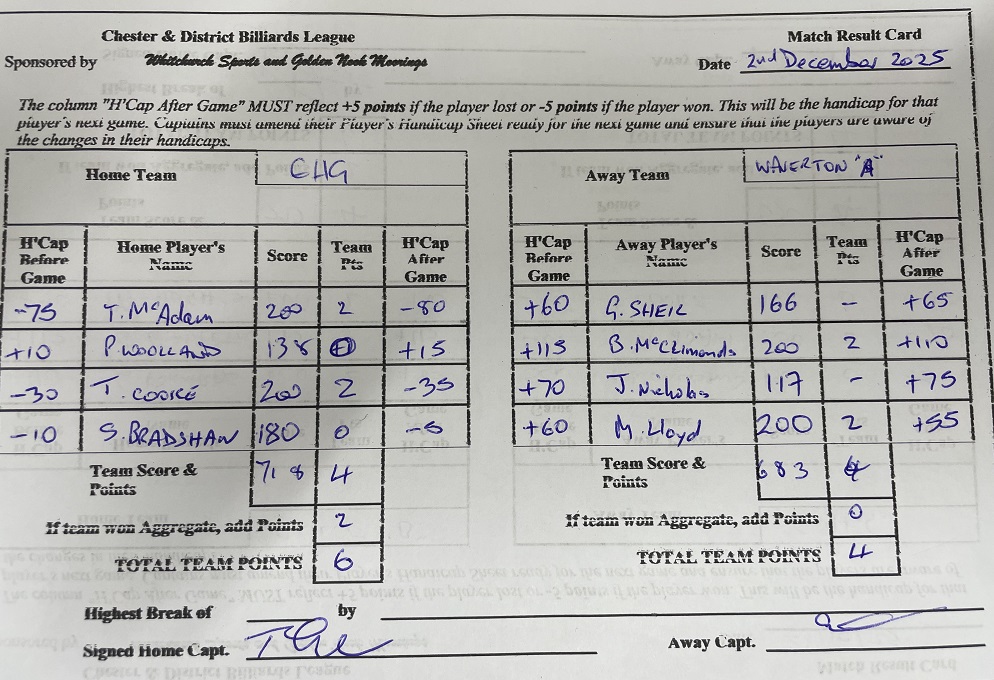 Chester & District Billiards League
Match Result Card
Sponsored by Whitchurch Sports and Golden Nook Moorings
Date 2nd December 2025
The column "H'Cap After Game" MUST reflect +5 points if the player lost or -5 points if the player won. This will be the handicap for that
player's next game. Captains must amend their Player's Handicap Sheet ready for the next game and ensure that the players are aware of
the changes in their handicaps.
Home Team CHG
Away Team WAVERTON "A"
H'Cap Before Game Home Player's Name Score Team Pts H'Cap After Game
H'Cap Before Game Away Player's Name Score Team Pts H'Cap After Game
-75 T. McAdam 200 2 -80
+60 G. SHEIL 166 - +65
+10 P. WOOLLAND 138 0 +15
+115 B. McClimonds 200 2 +110
-30 T. COOKE 200 2 -35
+70 J. Nicholas 117 - +75
-10 S. BRADSHAW 180 0 -5
+60 M. Lloyd 200 2 +55
Team Score & Points 718 4
Team Score & Points 683 4
If team won Aggregate, add Points 2
If team won Aggregate, add Points 0
TOTAL TEAM POINTS 6
TOTAL TEAM POINTS 4
Highest Break of by
Signed Home Capt.
Away Capt.